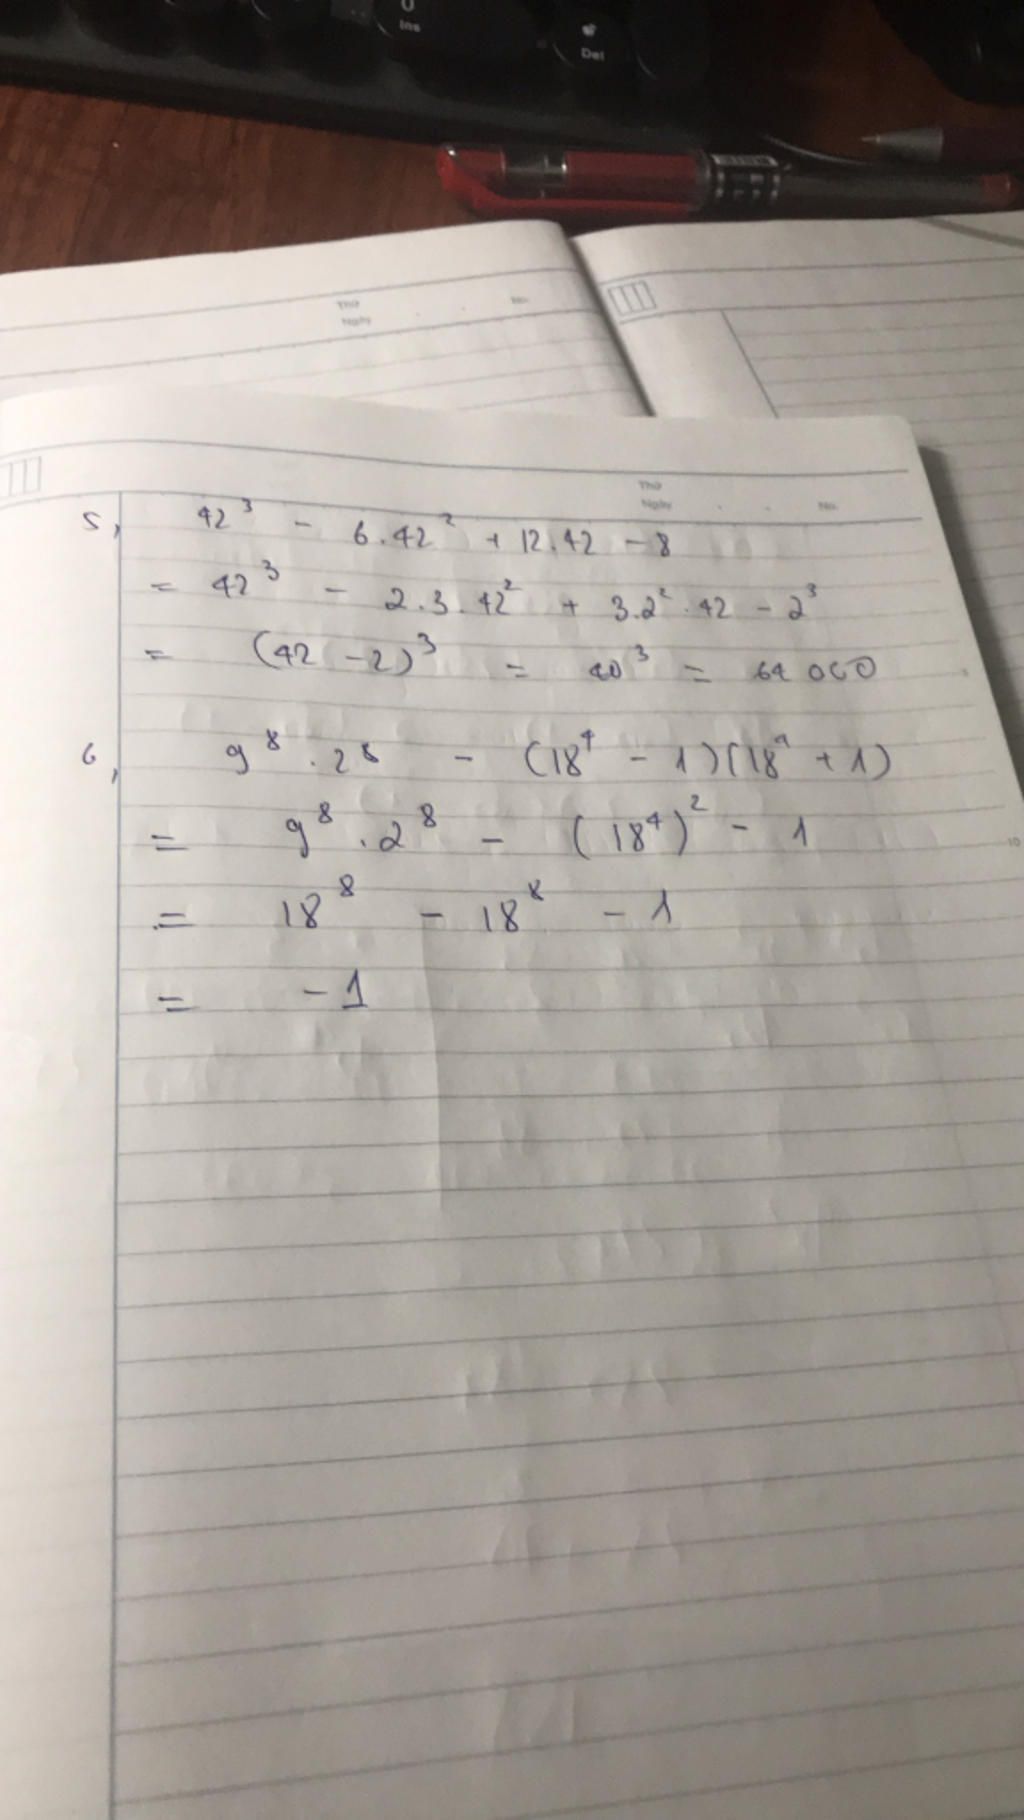 Ins
Del
Thứ
Ngày
No.
Thứ
Ngày
No.
5, 42³ - 6.42² + 12.42 - 8
= 42³ - 2.3.42² + 3.2².42 - 2³
= (42 - 2)³ = 40³ = 64 000
6, 9⁸.2⁸ - (18⁴ - 1)(18⁴ + 1)
= 9⁸.2⁸ - (18⁴)² - 1
= 18⁸ - 18⁸ - 1
= -1
10